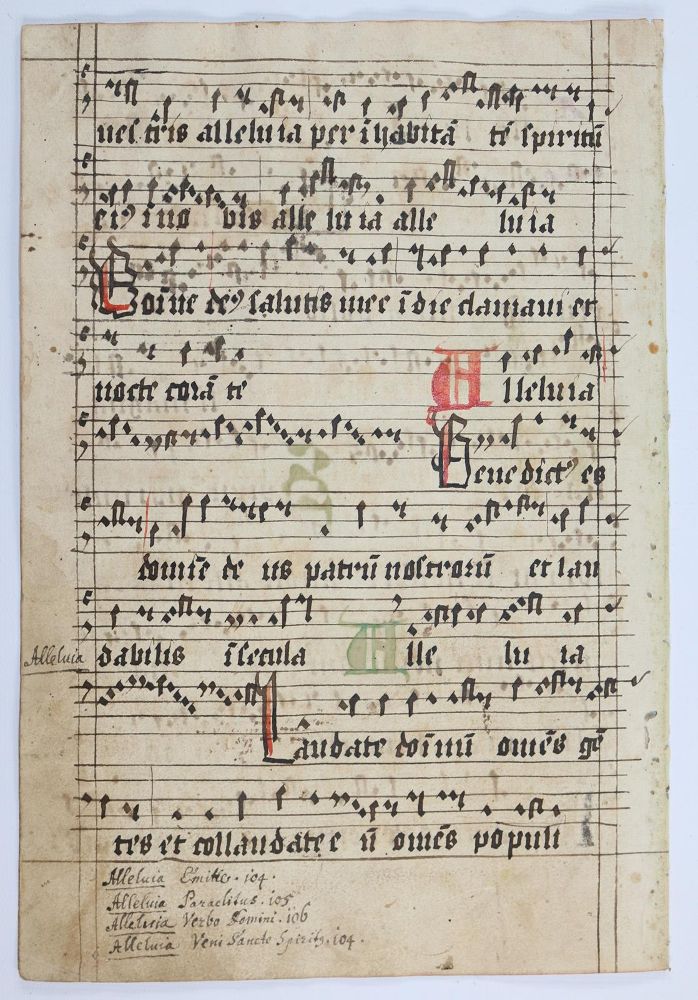 nestris alleluia per ihabitā tē spiritū
eiꝰ ino bis alle lu ia alle lu ia
Doīne deꝰ salutis mee ī die clamaui et
nocte corā te Alleluia
Benedictꝰ es
domīe de us patrū nostrorū et lau
dabilis ī secula Alle lu ia
Alleluia
Laudate doīnū omēs gē
tes et collaudate e ū omēs populi
Alleluia Emitte. 104.
Alleluia Paraclitus. 105
Alleluia Verbo Domini. 106
Alleluia Veni Sancte Spiritꝰ. 104.